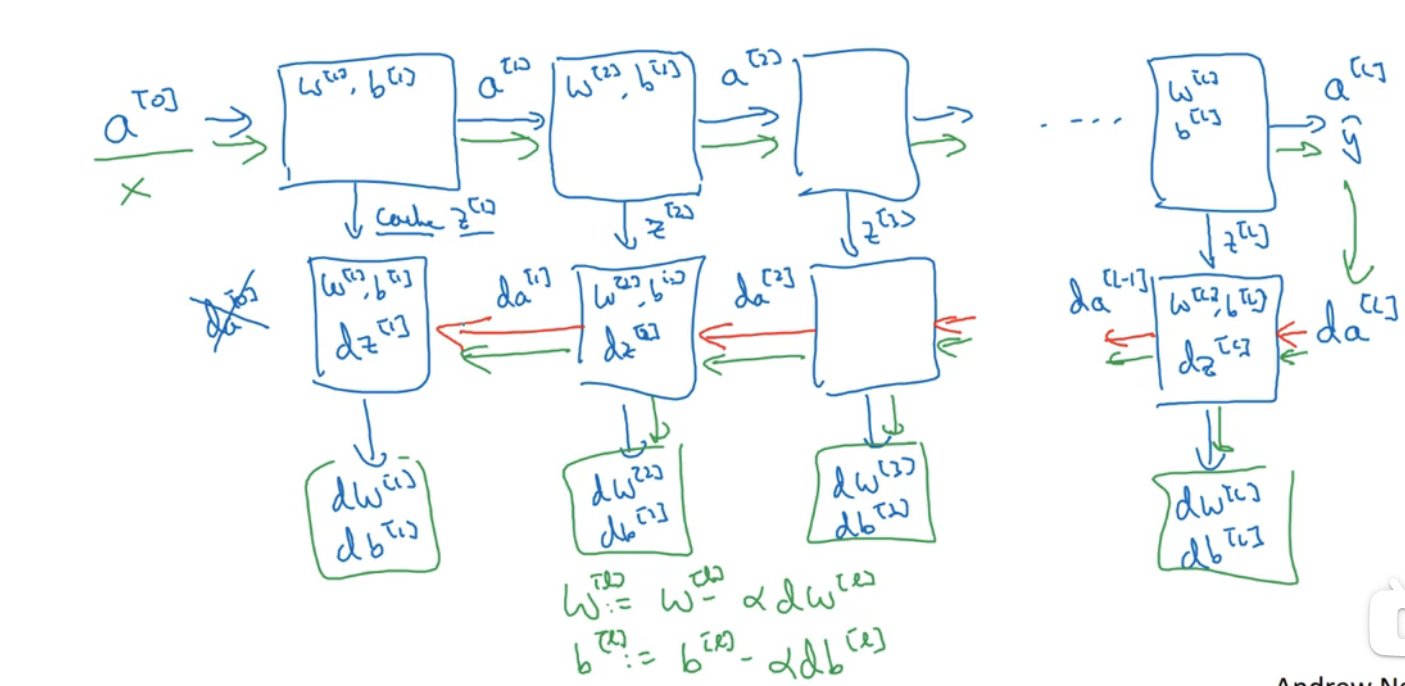 a^[0]
x
w^[1], b^[1]
a^[1]
w^[2], b^[1]
a^[2]
w^[L]
b^[L]
a^[L]
ŷ
cache z^[1]
z^[2]
z^[3]
z^[L]
da^[0]
w^[1], b^[1]
dz^[1]
da^[1]
w^[2], b^[2]
dz^[2]
da^[2]
da^[L-1]
w^[L], b^[L]
dz^[L]
da^[L]
dw^[1]
db^[1]
dw^[2]
db^[2]
dw^[3]
db^[3]
dw^[L]
db^[L]
w^[l] := w^[l] - αdw^[l]
b^[l] := b^[l] - αdb^[l]
Andrew